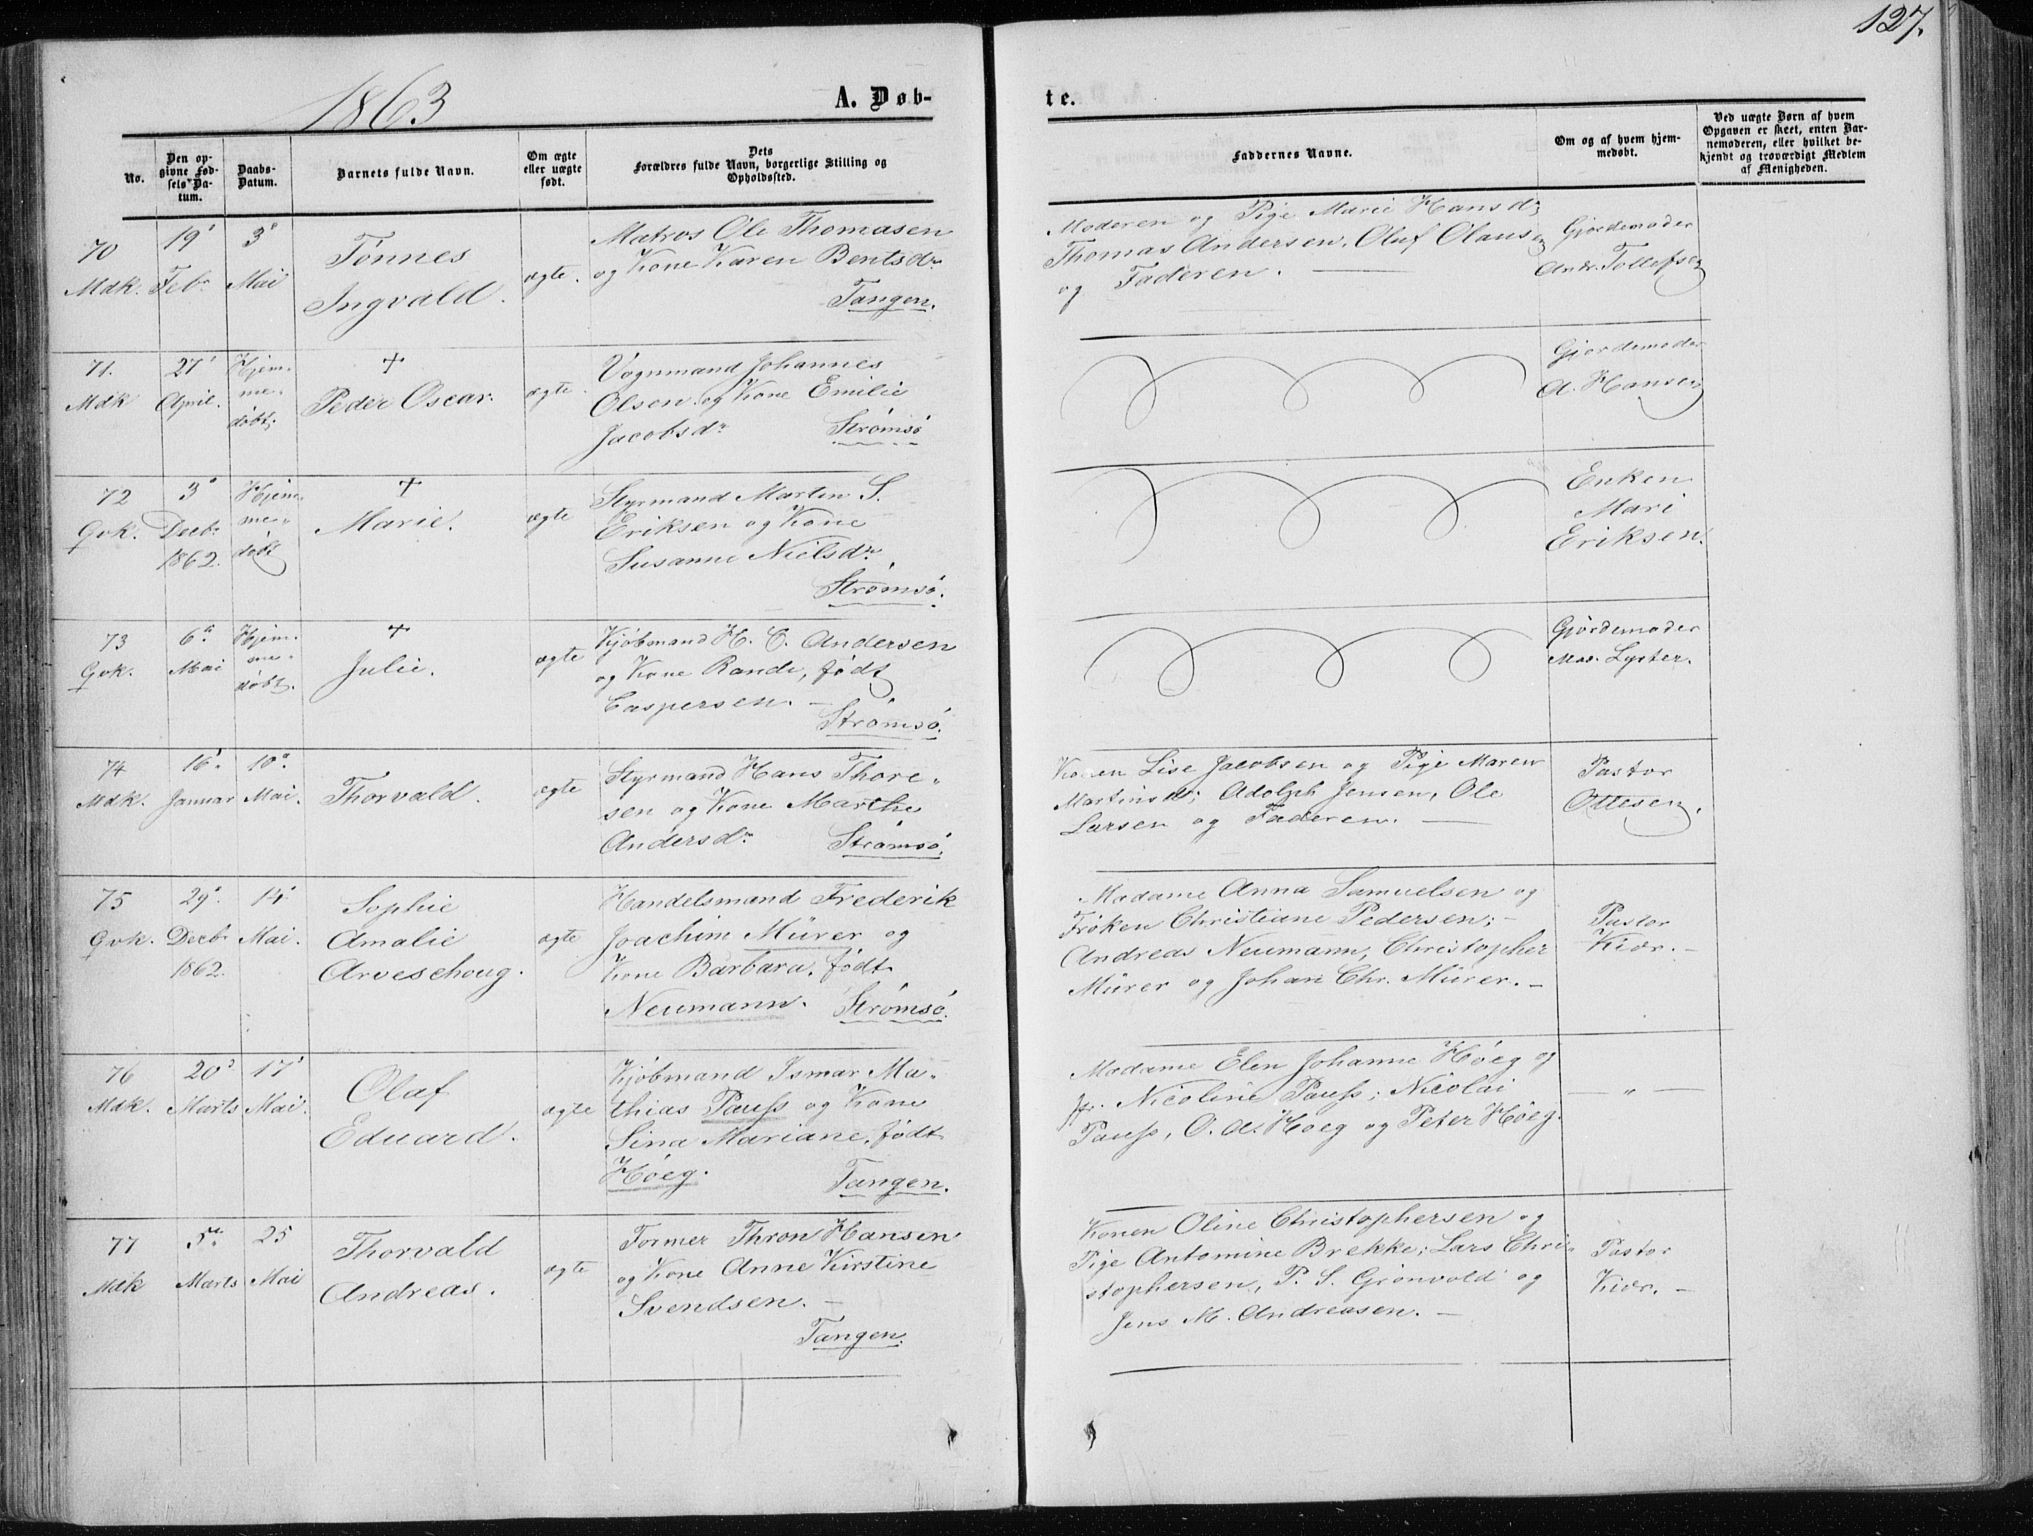 127.
1863
A. Døb-
te.
No.
Den op-
givne Fød-
sels Da-
tum.
Daabs-
Datum.
Barnets fulde Navn.
Om ægte
eller uægte
født.
Dets
Forældres fulde Navn, borgerlige Stilling og
Opholdssted.
Faddernes Navne.
Om og af hvem hjem-
medøbt.
Ved uægte Børn af hvem
Opgaven er skeet, enten Bar-
nemoderen, eller hvilket be-
kjendt og troværdigt Medlem
af Menigheden.
70
Mdk.
19'
Feb.
3'
Mai
Tønnes
Ingvald.
ægte.
Matros Ole Thomasen
og Kone Karen Bentsdr
Tangen.
Moderen og Pige Marie Hansd;
Thomas Andersen, Olaf Olausen
og Faderen. —
Gjordemoder
Andr. Tollefsen
71.
Mdk
27'
April.
Hjem-
me-
døbt.
+
Peder Oscar.
ægte.
Vognmand Johannes
Olsen og Kone Emilie
Jacobsdr Strømsø
Gjordemoder
A. Hansen
72
Qvk.
3'
Decbr
1862.
Hjem-
me-
døbt
+
Marie.
ægte
Styrmand Martin S.
Eriksen og Kone
Susanne Nielsdr,
Strømsø.
Enken
Mari
Eriksen.
73
Qvk.
6'
Mai
Hjem-
me-
døbt.
+
Julie.
ægte
Kjøbmand H. C. Andersen
og Kone Randi, født
Caspersen. —
Strømsø.
Gjordemoder
Mad. Lyster.
74
Mdk.
16'
Januar
10'
Mai.
Thorvald.
ægte
Styrmand Hans Thore-
sen og Kone Marthe
Andersdr Strømsø.
Konen Lise Jacobsen og Pige Maren
Martinsd; Adolph Jensen, Ole
Larsen og Faderen. —
Pastor
Ottesen.
75
Qvk.
29'
Decbr
1862.
14'
Mai.
Sophie
Amalie
Arveschoug.
ægte
Handelsmand Frederik
Joachim Mürer og
Kone Barbara, født
Neumann. Strømsø.
Madame Anna Samuelsen og
Frøken Christiane Pedersen; -
Andreas Neumann, Christopher
Mürer og Johan Chr. Mürer. -
Pastor
Kiær. -
76
Mdk.
20'
Marts
17'
Mai.
Olaf
Eduard.
ægte
Kjøbmand Ismar Ma-
thias Pauss og Kone
Lina Mariane, født
Høeg. Tangen.
Madame Elen Johanne Høeg og
Fr. Nicoline Pauss; Nicolai
Pauss, O. A. Høeg og Peter Høeg.
— " —
77
Mdk
5te
Marts
25
Mai
Thorvald
Andreas.
ægte
Former Thron Hansen
og Kone Anne Kirstine
Svendsen. —
Tangen.
Konen Oline Christophersen og
Pige Antomine Brekke; Lars Chri-
stophersen, P. S. Grønvold og
Jens M. Andreasen. —
Pastor
Kiær. -